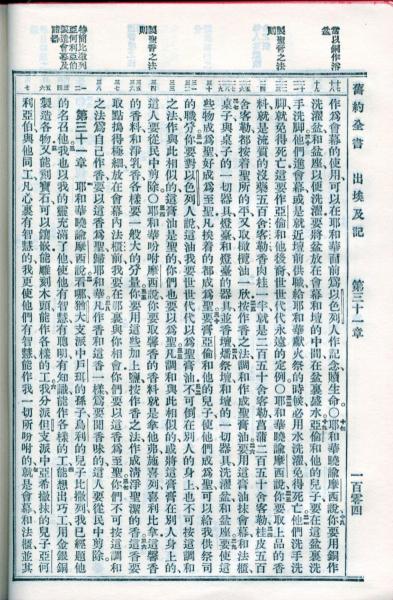 舊約全書　出埃及記　第三十一章　一百零四
當以銅作浴盆
製聖膏之法則
製聖香之法則
特簡比撒列亞何利亞伯製造會幕及諸器
作為會幕的使用可以在耶和華面前為以色列人作記念贖生命○耶和華曉諭摩西說你要用銅作
洗濯盆和盆座以便洗濯要將盆放在會幕和壇的中間在盆裏盛水亞倫和他的兒子要在這盆裏洗
手洗脚他們進會幕或是就近壇前供職給耶和華獻火祭的時候必用水洗濯免得死亡他們洗手洗
脚就免得死亡這要作亞倫和他後裔世世代代永遠的定例○耶和華曉諭摩西說你要取上品的香
料就是流質的沒藥五百舍客勒香肉桂一半就是二百五十舍客勒菖蒲二百五十舍客勒桂皮五百
舍客勒都按着聖所的平又取橄欖油一欣按作香之法調和作成聖膏油要用這膏油抹會幕和法櫃
桌子與桌子的一切器具燈臺和燈臺的器具並香壇燔祭壇和壇的一切器具洗濯盆和盆座要使這
些物成為聖好成為至聖凡挨着的都成為聖要膏亞倫和他的兒子使他們成為聖可以給我供祭司
的職分你要對以色列人說這油我要世世代代以為聖膏油不可倒在別人的身上也不可按這調和
之法作與此相似的這膏油是聖的你們也要以為聖凡調和與此相似的或將這膏膏在別人身上的
這人要從民中剪除○耶和華吩咐摩西說你要取馨香的香料就是拿他弗施喜列喜利比拿這馨香
的香料和淨乳香各樣要一般大的分量你要用這些加上鹽按作香之法作成清淨聖潔的香這香要
取點搗得極細放在會幕內法櫃前我要在那裏與你相會你們要以這香為至聖你們不可按這調和
之法為自己作香要以這香為聖歸耶和華凡作香和這香一樣為要聞香味的這人要從民中剪除
第三十一章　耶和華曉諭摩西說看哪猶大支派中戶珥的孫子烏利的兒子比撒列我已經題他
的名召他我也以我的靈充滿了他使他有智慧有聰明有知識能作各樣的工能想出巧工用金銀銅
製造各物又能刻寶石可以鑲嵌能雕刻木頭能作各樣的工我分派但支派中亞希撒抹的兒子亞何
利亞伯與他同工凡心裏有智慧的我更使他們有智慧能作我一切所吩咐的就是會幕和法櫃並其